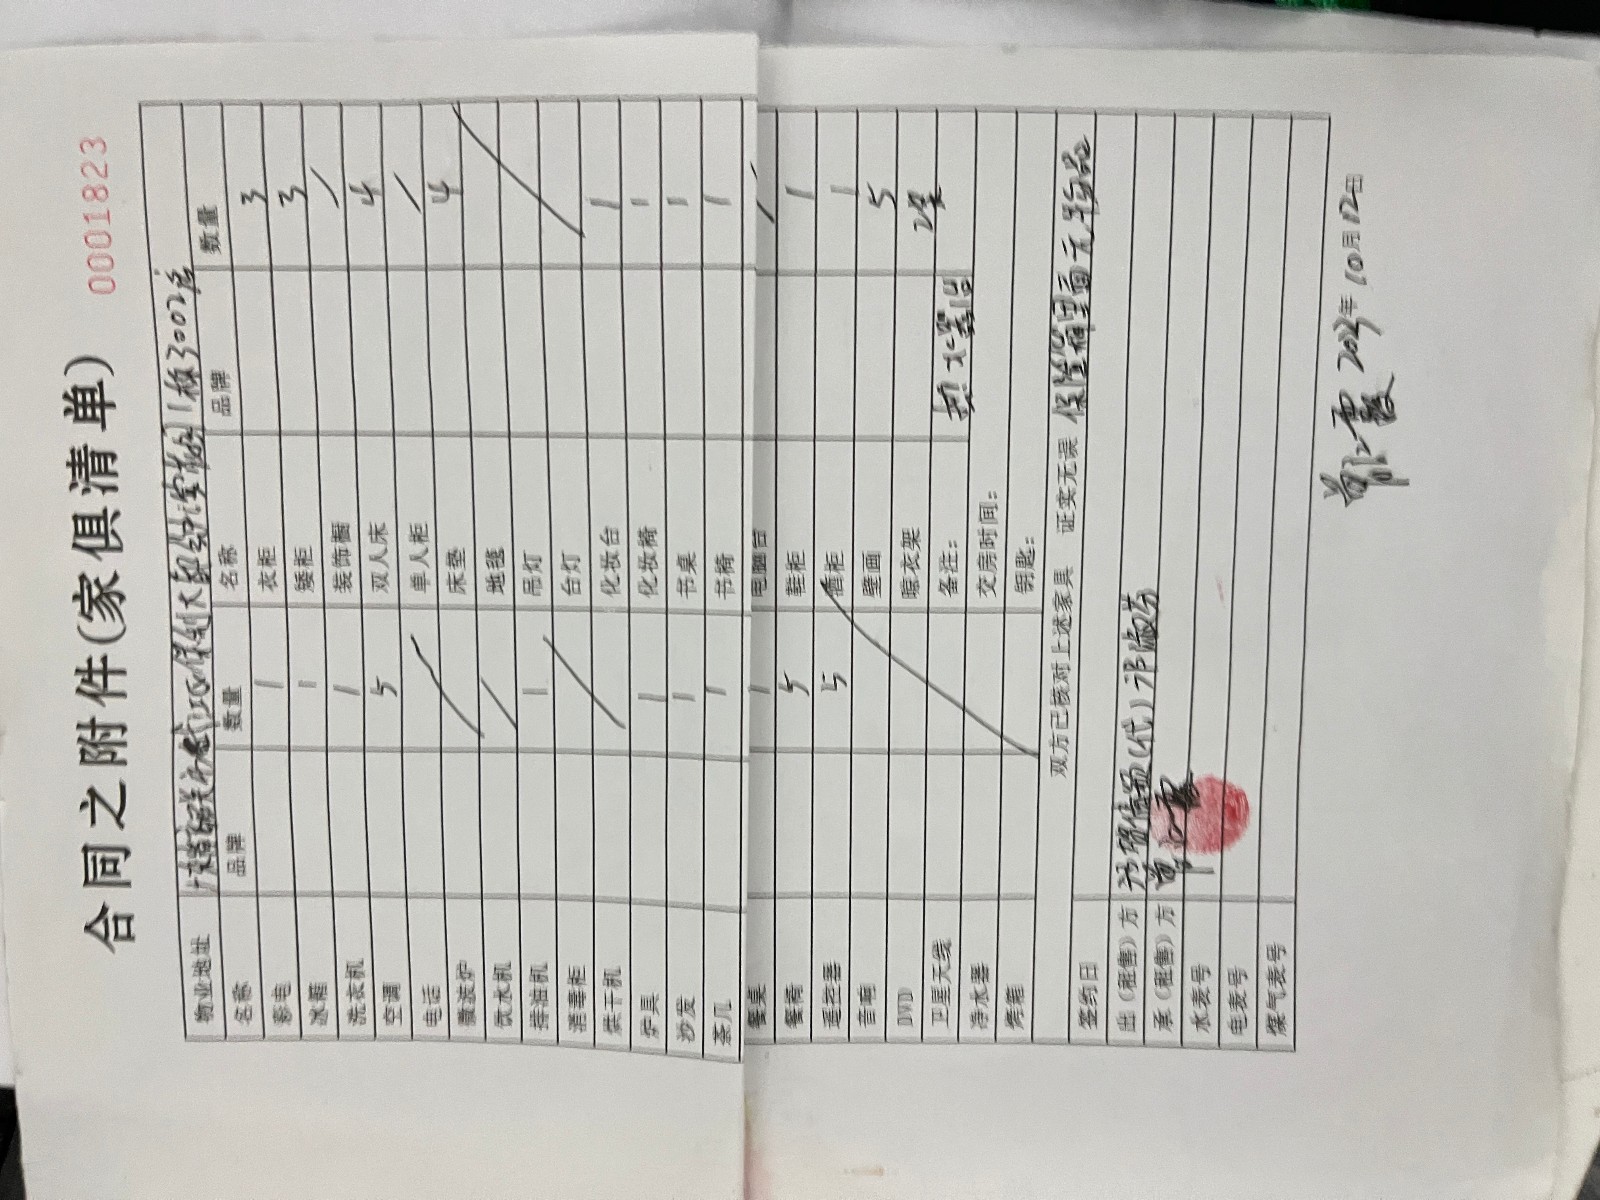 合同之附件(家俱清单)
0001823
物业地址 1栋3002房
名称 品牌 数量 名称 品牌 数量
彩电 1 衣柜 3
冰箱 1 矮柜 3
洗衣机 1 装饰橱 /
空调 5 双人床 4
电话 单人柜 /
微波炉 床垫 4
饮水机 地毯
排油机 1 吊灯
消毒柜 台灯
烘干机 化妆台 1
炉具 1 化妆椅 1
沙发 1 书桌 1
茶几 1 书椅 1
餐桌 1 电脑台 /
餐椅 5 鞋柜 1
遥控器 5 酒柜 1
音响 壁画 5
DVD 晾衣架
卫星天线 备注:
净水器 交房时间:
烤箱 钥匙:
双方已核对上述家具 证实无误 保险箱里面无物品
签约日
出(租售)方 (代)
承(租售)方
水表号
电表号
煤气表号
2023年10月12日